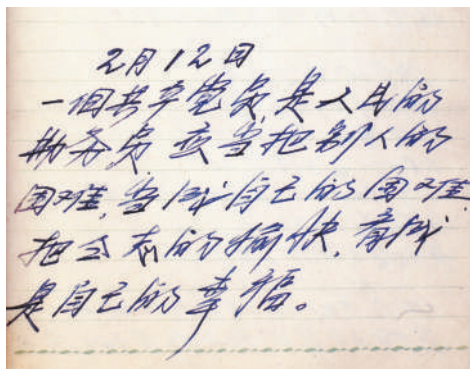 2月12日
一個共产党员是人民的
勤务员应当把别人的
困难,当成自己的困难,
把同志的愉快,看成
是自己的幸福。